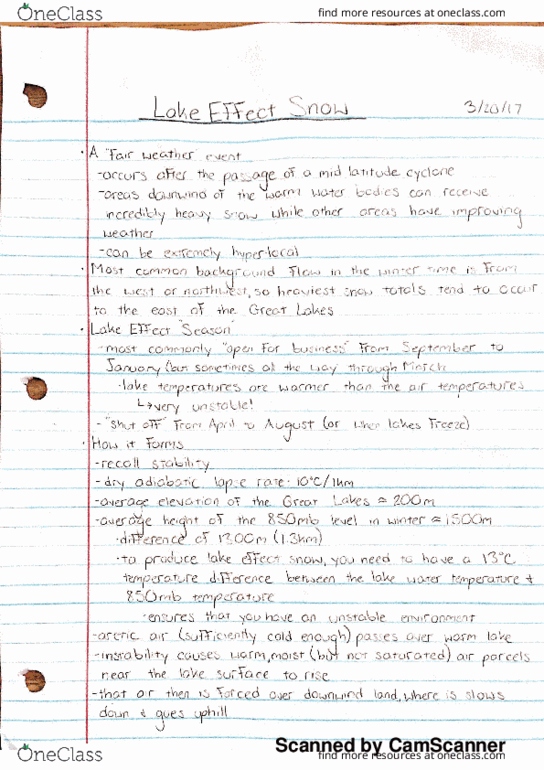 OneClass
find more resources at oneclass.com
Lake Effect Snow
3/20/17
· A "fair weather" event
-occurs after the passage of a mid latitude cyclone
-areas downwind of the warm water bodies can receive
incredibly heavy snow while other areas have improving
weather
-can be extremely hyperlocal
· Most common background flow in the winter time is from
the west or northwest, so heaviest snow totals tend to occur
to the east of the Great Lakes
· Lake Effect "Season"
-most commonly "open for business" from September to
January (can sometimes all the way through March
·lake temperatures are warmer than the air temperatures
↳very unstable!
-"shut off" from April to August (or when lakes freeze)
· How it Forms
-recall stability
-dry adiabatic lapse rate: 10°C/1km
-average elevation of the Great Lakes ≈ 200m
-average height of the 850mb level in winter ≈ 1500m
·difference of 1300m (1.3km)
·to produce lake effect snow, you need to have a 13°C
temperature difference between the lake water temperature +
850mb temperature
-ensures that you have an unstable environment
-arctic air (sufficiently cold enough) passes over warm lake
-instability causes warm, moist (but not saturated) air parcels
near the lake surface to rise
-that air then is forced over downwind land, where is slows
down & goes uphill
Scanned by CamScanner
OneClass
find more resources at oneclass.com